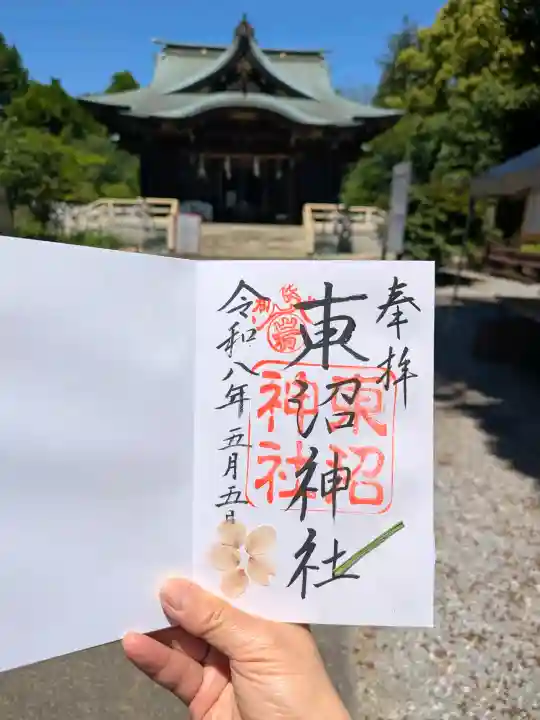 奉拝
東沼神社
東沼
神社
令和八年五月五日